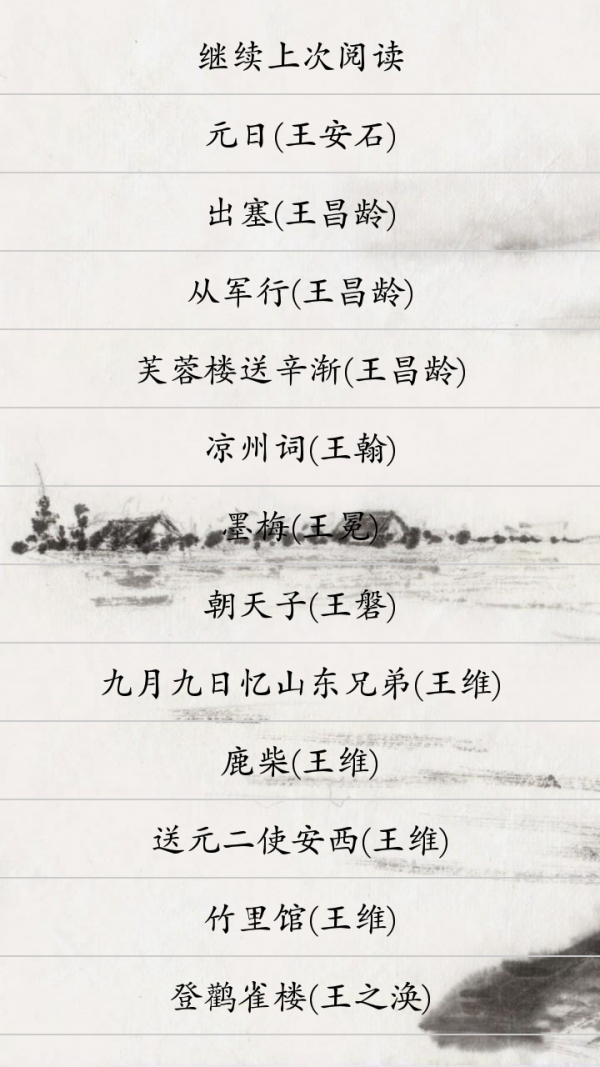 继续上次阅读
元日(王安石)
出塞(王昌龄)
从军行(王昌龄)
芙蓉楼送辛渐(王昌龄)
凉州词(王翰)
墨梅(王冕)
朝天子(王磐)
九月九日忆山东兄弟(王维)
鹿柴(王维)
送元二使安西(王维)
竹里馆(王维)
登鹳雀楼(王之涣)